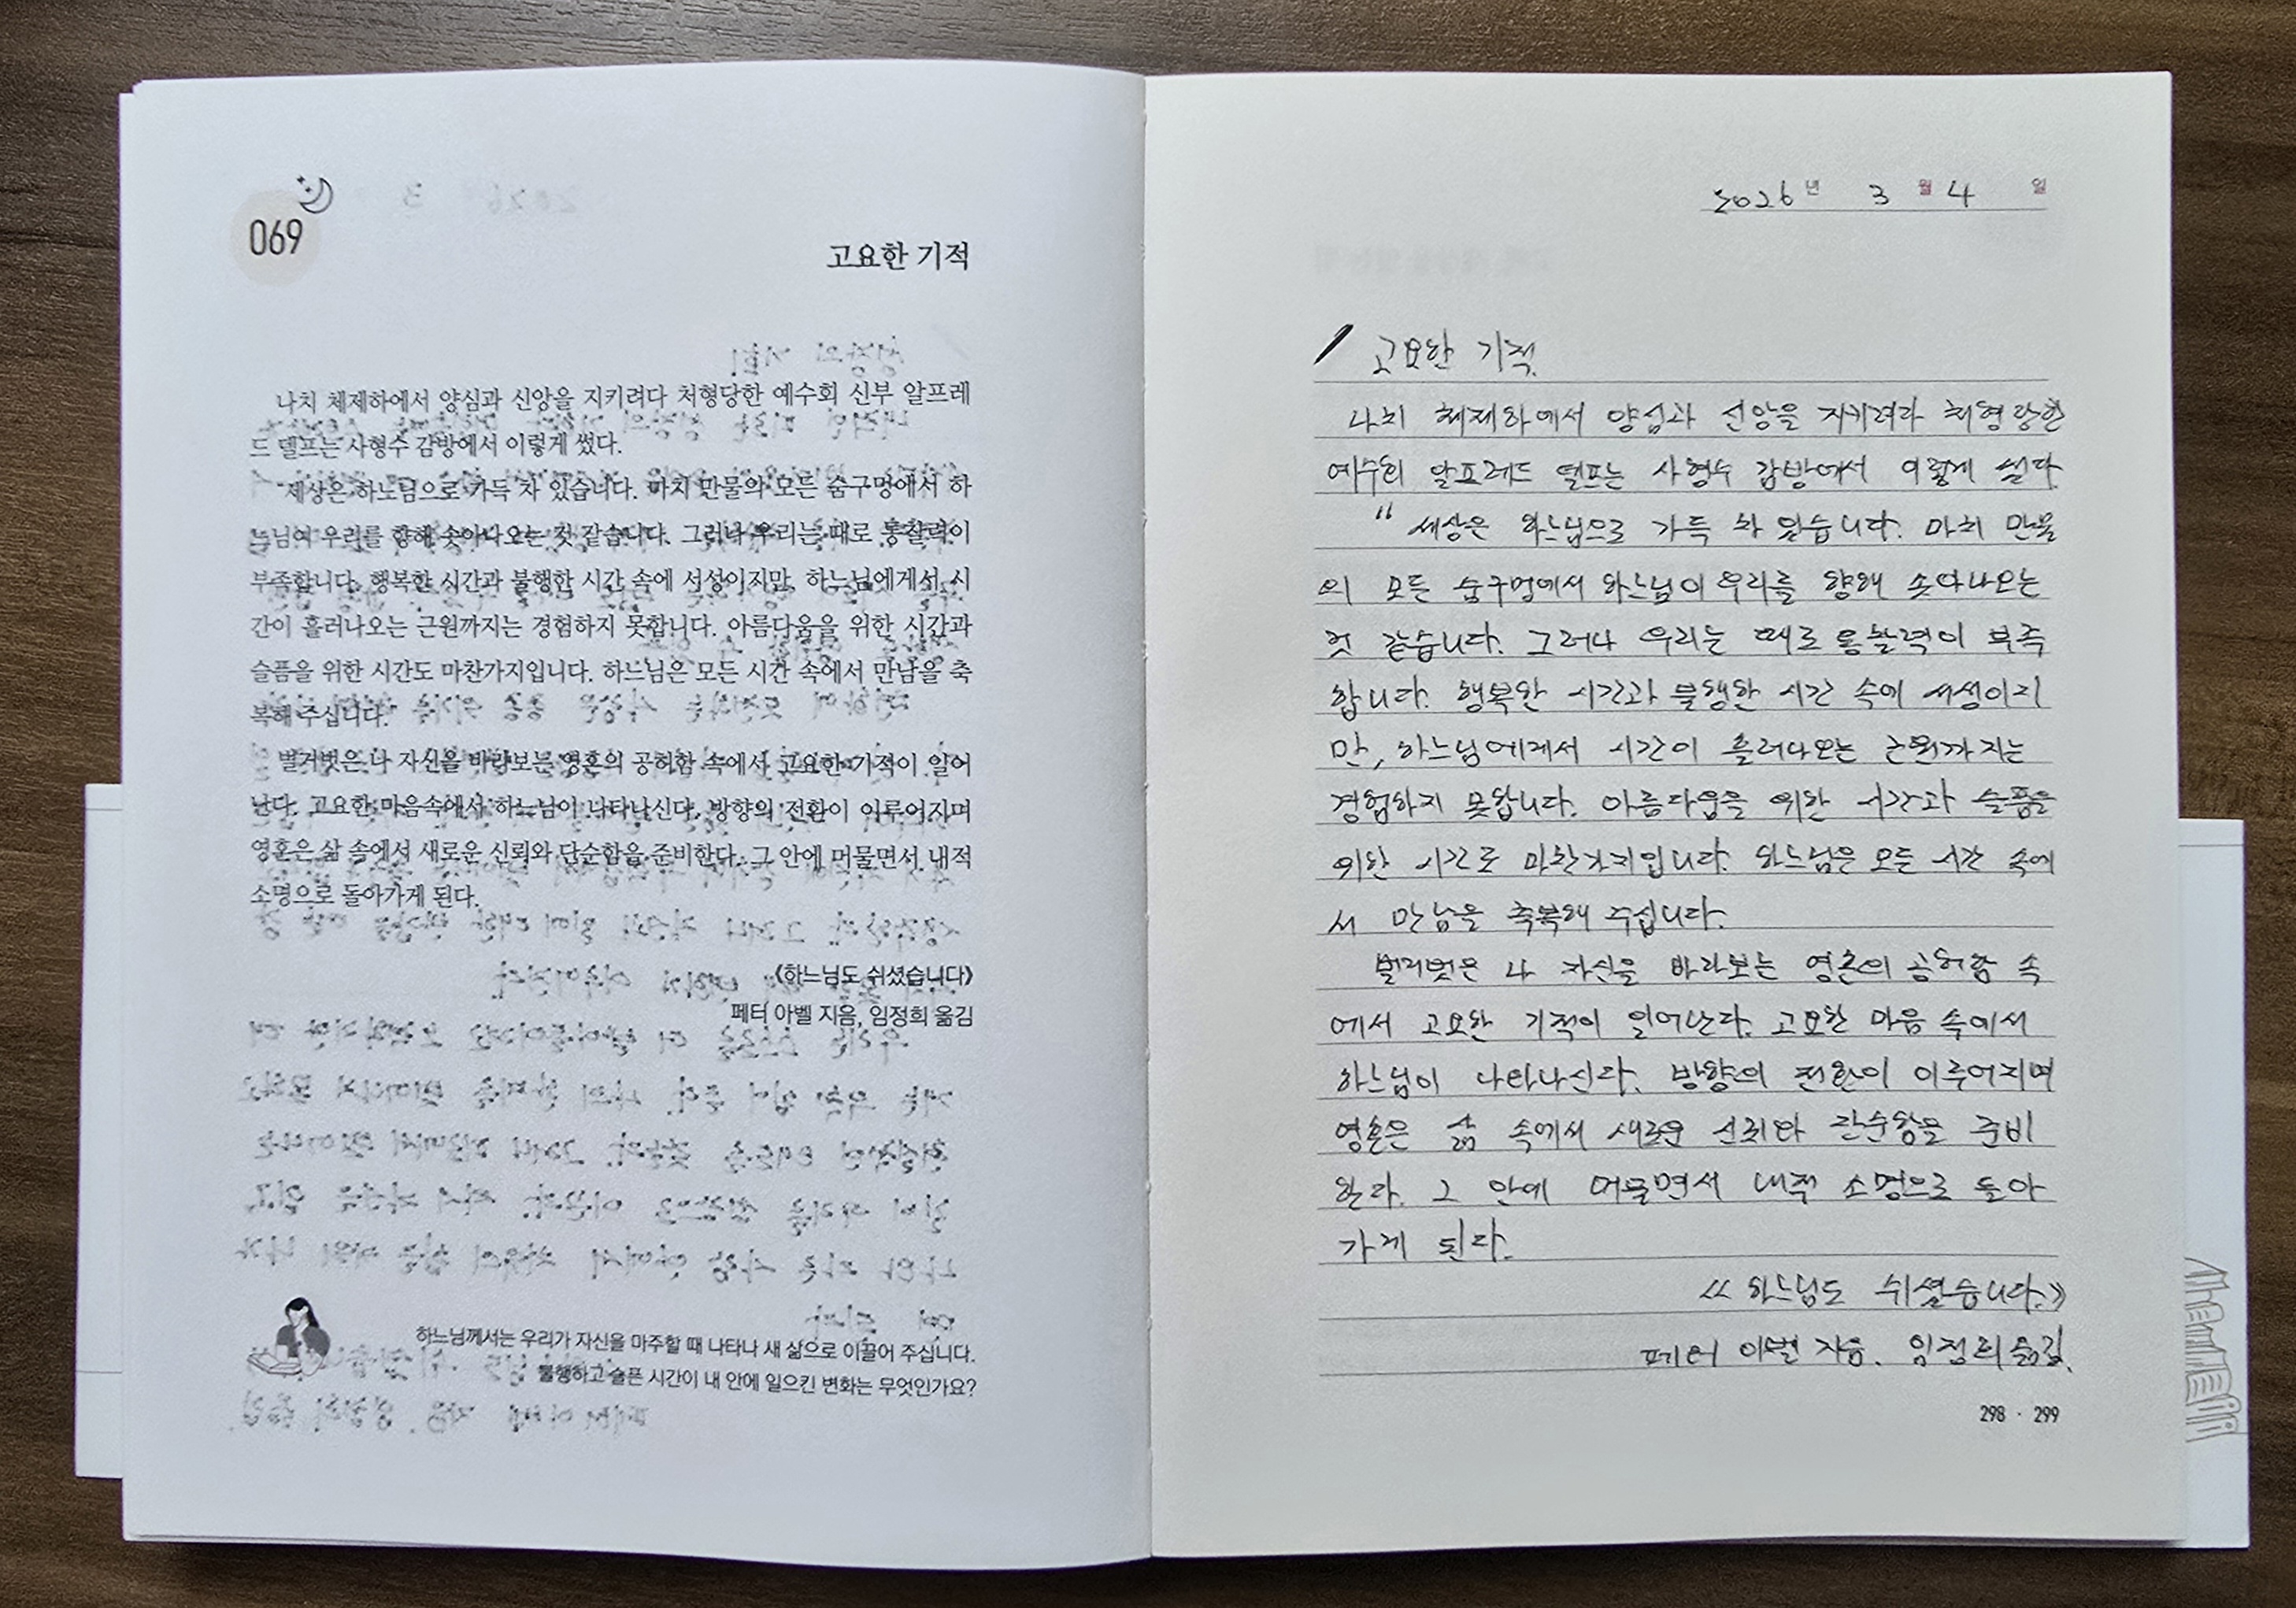 069
고요한 기적
나치 체제하에서 양심과 신앙을 지키려다 처형당한 예수회 신부 알프레
드 델프는 사형수 감방에서 이렇게 썼다.
"세상은 하느님으로 가득 차 있습니다. 마치 만물의 모든 숨구멍에서 하
느님이 우리를 향해 솟아나오는 것 같습니다. 그러나 우리는 때로 통찰력이
부족합니다. 행복한 시간과 불행한 시간 속에 서성이지만, 하느님에게서 시
간이 흘러나오는 근원까지는 경험하지 못합니다. 아름다움을 위한 시간과
슬픔을 위한 시간도 마찬가지입니다. 하느님은 모든 시간 속에서 만남을 축
복해 주십니다."
벌거벗은 나 자신을 바라보는 영혼의 공허함 속에서 고요한 기적이 일어
난다. 고요한 마음속에서 하느님이 나타나신다. 방향의 전환이 이루어지며
영혼은 삶 속에서 새로운 신뢰와 단순함을 준비한다. 그 안에 머물면서 내적
소명으로 돌아가게 된다.
《하느님도 쉬셨습니다》
페터 아벨 지음, 임정희 옮김
하느님께서는 우리가 자신을 마주할 때 나타나 새 삶으로 이끌어 주십니다.
불행하고 슬픈 시간이 내 안에 일으킨 변화는 무엇인가요?
2026년 3월 4일
고요한 기적
나치 체제하에서 양심과 신앙을 지키려다 처형당한
예수회 알프레드 델프는 사형수 감방에서 이렇게 썼다.
"세상은 하느님으로 가득 차 있습니다. 마치 만물
의 모든 숨구멍에서 하느님이 우리를 향해 솟아나오는
것 같습니다. 그러나 우리는 때로 통찰력이 부족
합니다. 행복한 시간과 불행한 시간 속에 서성이지
만, 하느님에게서 시간이 흘러나오는 근원까지는
경험하지 못합니다. 아름다움을 위한 시간과 슬픔을
위한 시간도 마찬가지입니다. 하느님은 모든 시간 속에
서 만남을 축복해 주십니다.
벌거벗은 나 자신을 바라보는 영혼의 공허함 속
에서 고요한 기적이 일어난다. 고요한 마음 속에서
하느님이 나타나신다. 방향의 전환이 이루어지며
영혼은 삶 속에서 새로운 신뢰와 단순함을 준비
한다. 그 안에 머물면서 내적 소명으로 돌아
가게 된다.
《하느님도 쉬셨습니다.》
페터 아벨 지음. 임정희 옮김.
298 · 299